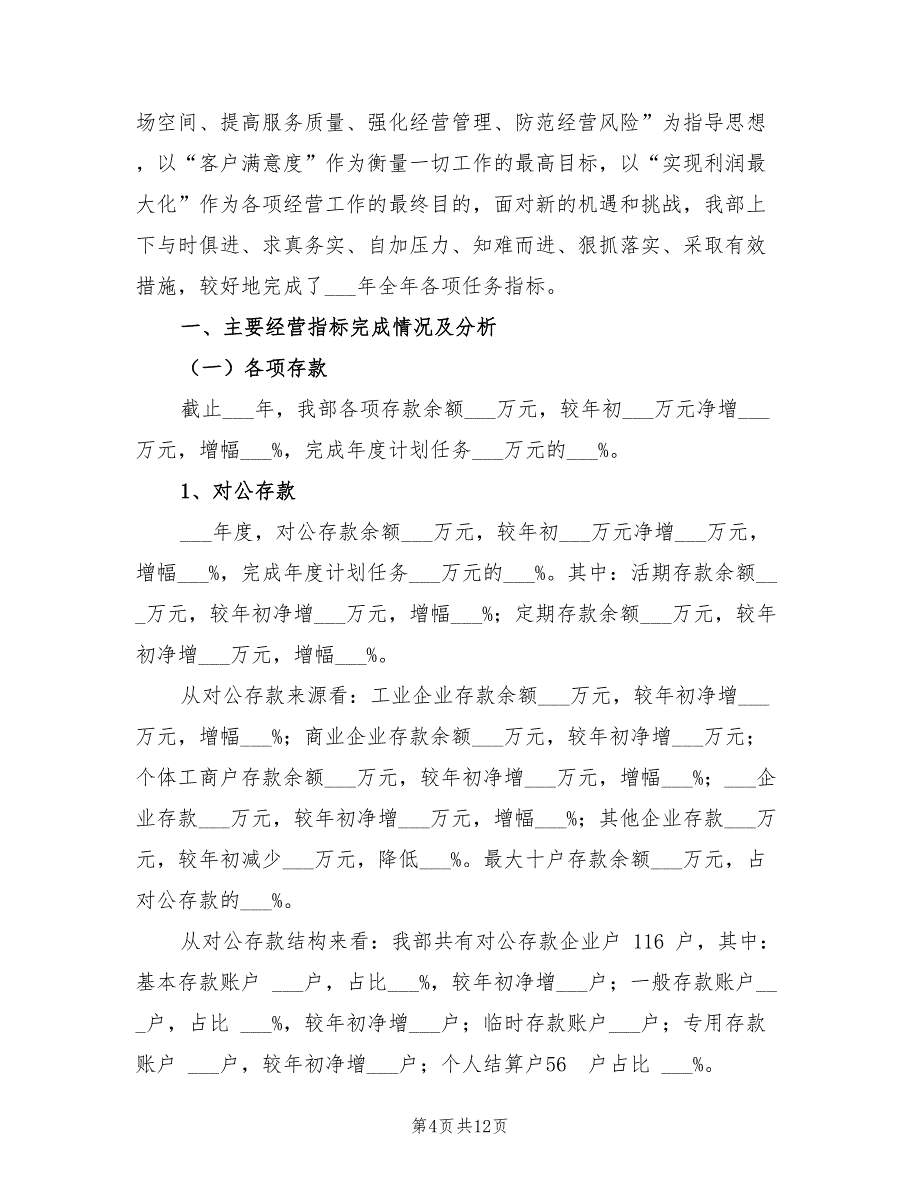 场空间、提高服务质量、强化经营管理、防范经营风险”为指导思想
，以“客户满意度”作为衡量一切工作的最高目标，以“实现利润最
大化”作为各项经营工作的最终目的，面对新的机遇和挑战，我部上
下与时俱进、求真务实、自加压力、知难而进、狠抓落实、采取有效
措施，较好地完成了___年全年各项任务指标。
一、主要经营指标完成情况及分析
（一）各项存款
截止___年，我部各项存款余额___万元，较年初___万元净增___
万元，增幅___%，完成年度计划任务___万元的___%。
1、对公存款
___年度，对公存款余额___万元，较年初___万元净增___万元，
增幅___%，完成年度计划任务___万元的___%。其中：活期存款余额__
_万元，较年初净增___万元，增幅___%；定期存款余额___万元，较年
初净增___万元，增幅___%。
从对公存款来源看：工业企业存款余额___万元，较年初净增___
万元，增幅___%；商业企业存款余额___万元，较年初净增___万元；
个体工商户存款余额___万元，较年初净增___万元，增幅___%；___企
业存款___万元，较年初净增___万元，增幅___%；其他企业存款___万
元，较年初减少___万元，降低___%。最大十户存款余额___万元，占
对公存款的___%。
从对公存款结构来看：我部共有对公存款企业户 116 户，其中：
基本存款账户 ___户，占比___%，较年初净增___户；一般存款账户__
_户，占比 ___%，较年初净增___户；临时存款账户___户；专用存款
账户 ___户，较年初净增___户；个人结算户56  户占比 ___%。
第4页共12页